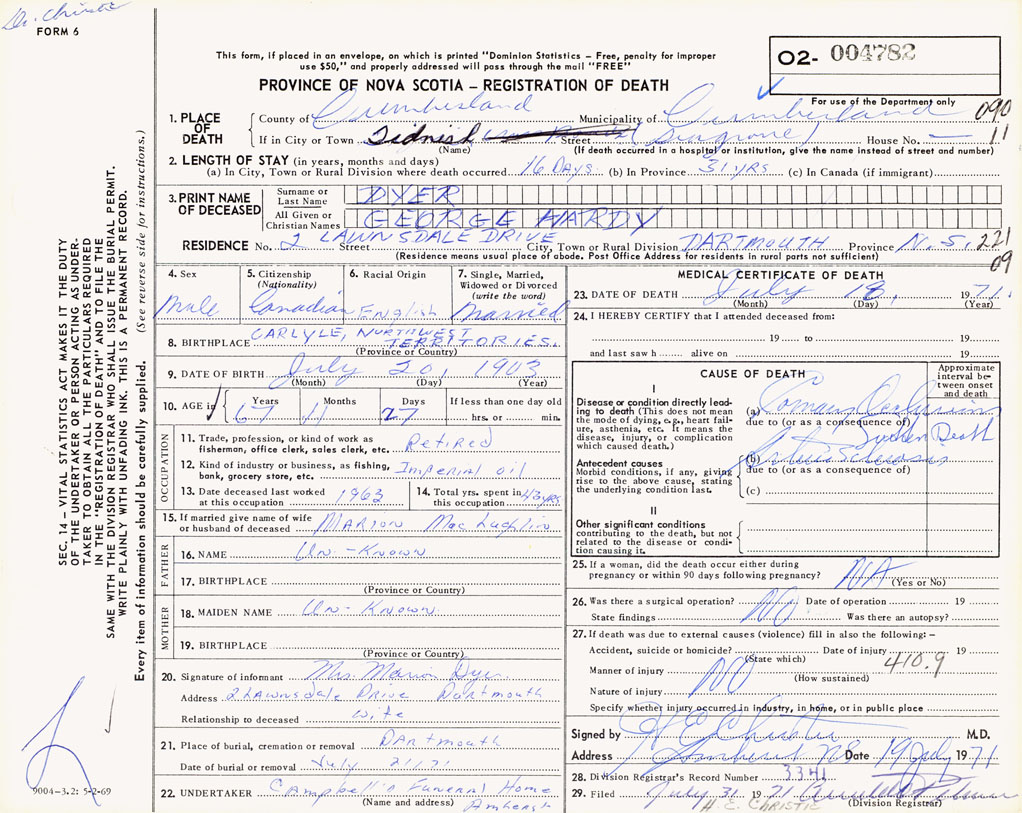 Dr. Christie
FORM 6
This form, if placed in an envelope, on which is printed "Dominion Statistics – Free, penalty for improper
use $50," and properly addressed will pass through the mail "FREE"
O2- 004782
PROVINCE OF NOVA SCOTIA – REGISTRATION OF DEATH
For use of the Department only
090
11
1. PLACE OF DEATH
County of Cumberland Municipality of Cumberland
If in City or Town Tidnish Street House No. —
(Name) (If death occurred in a hospital or institution, give the name instead of street and number)
2. LENGTH OF STAY (in years, months and days)
(a) In City, Town or Rural Division where death occurred 16 DAYS (b) In Province 31 YRS (c) In Canada (if immigrant)
3. PRINT NAME OF DECEASED
Surname or Last Name DYER
All Given or Christian Names GEORGE HARDY
RESIDENCE No. 2 LAWNSDALE DRIVE Street City, Town or Rural Division DARTMOUTH Province N.S. 221
09
(Residence means usual place of abode. Post Office Address for residents in rural parts not sufficient)
4. Sex
Male
5. Citizenship
(Nationality)
Canadian
6. Racial Origin
English
7. Single, Married,
Widowed or Divorced
(write the word)
Married
8. BIRTHPLACE CARLYLE, NORTHWEST TERRITORIES.
(Province or Country)
9. DATE OF BIRTH July 20, 1903
(Month) (Day) (Year)
10. AGE in Years Months Days If less than one day old
67 11 27 hrs. or min.
OCCUPATION
11. Trade, profession, or kind of work as
fisherman, office clerk, sales clerk, etc. Retired
12. Kind of industry or business, as fishing,
bank, grocery store, etc. Imperial oil
13. Date deceased last worked
at this occupation 1963
14. Total yrs. spent in
this occupation 43 yrs
15. If married give name of wife
or husband of deceased Marion MacLaughlin
FATHER
16. NAME Un-Known
17. BIRTHPLACE
(Province or Country)
MOTHER
18. MAIDEN NAME Un-Known
19. BIRTHPLACE
(Province or Country)
20. Signature of informant Mrs Marion Dyer
Address 2 Lawnsdale Drive Dartmouth
Relationship to deceased wife
21. Place of burial, cremation or removal Dartmouth
Date of burial or removal July 21, 71
22. UNDERTAKER Campbell's Funeral Home
(Name and address) Amherst
MEDICAL CERTIFICATE OF DEATH
23. DATE OF DEATH July 18, 1971.
(Month) (Day) (Year)
24. I HEREBY CERTIFY that I attended deceased from:
19 to 19
and last saw h alive on 19
CAUSE OF DEATH
Approximate
interval be-
tween onset
and death
I
Disease or condition directly lead-
ing to death (This does not mean
the mode of dying, e.g., heart fail-
ure, asthenia, etc. It means the
disease, injury, or complication
which caused death.)
(a) Coronary Occlusion
due to (or as a consequence of)
Sudden Death
Antecedent causes
Morbid conditions, if any, giving
rise to the above cause, stating
the underlying condition last.
(b) Arteriosclerosis
due to (or as a consequence of)
(c)
II
Other significant conditions
contributing to the death, but not
related to the disease or condi-
tion causing it.
25. If a woman, did the death occur either during
pregnancy or within 90 days following pregnancy? N/A
(Yes or No)
26. Was there a surgical operation? NO Date of operation 19
State findings Was there an autopsy?
27. If death was due to external causes (violence) fill in also the following: –
Accident, suicide or homicide? Date of injury 19
(State which) 410.9
Manner of injury NO
(How sustained)
Nature of injury
Specify whether injury occurred in industry, in home, or in public place
Signed by H E Christie M.D.
Address Amherst NS Date 19 July 1971
28. Division Registrar's Record Number 3341
29. Filed July 31 1971
H. E. CHRISTIE (Division Registrar)
SEC. 14 – VITAL STATISTICS ACT MAKES IT THE DUTY
OF THE UNDERTAKER OR PERSON ACTING AS UNDER-
TAKER TO OBTAIN ALL THE PARTICULARS REQUIRED
IN THE "REGISTRATION OF DEATH" AND TO FILE THE
SAME WITH THE DIVISION REGISTRAR WHO SHALL ISSUE THE BURIAL PERMIT.
WRITE PLAINLY WITH UNFADING INK. THIS IS A PERMANENT RECORD.
Every item of information should be carefully supplied. (See reverse side for instructions.)
9004-3.2: 5-2-69